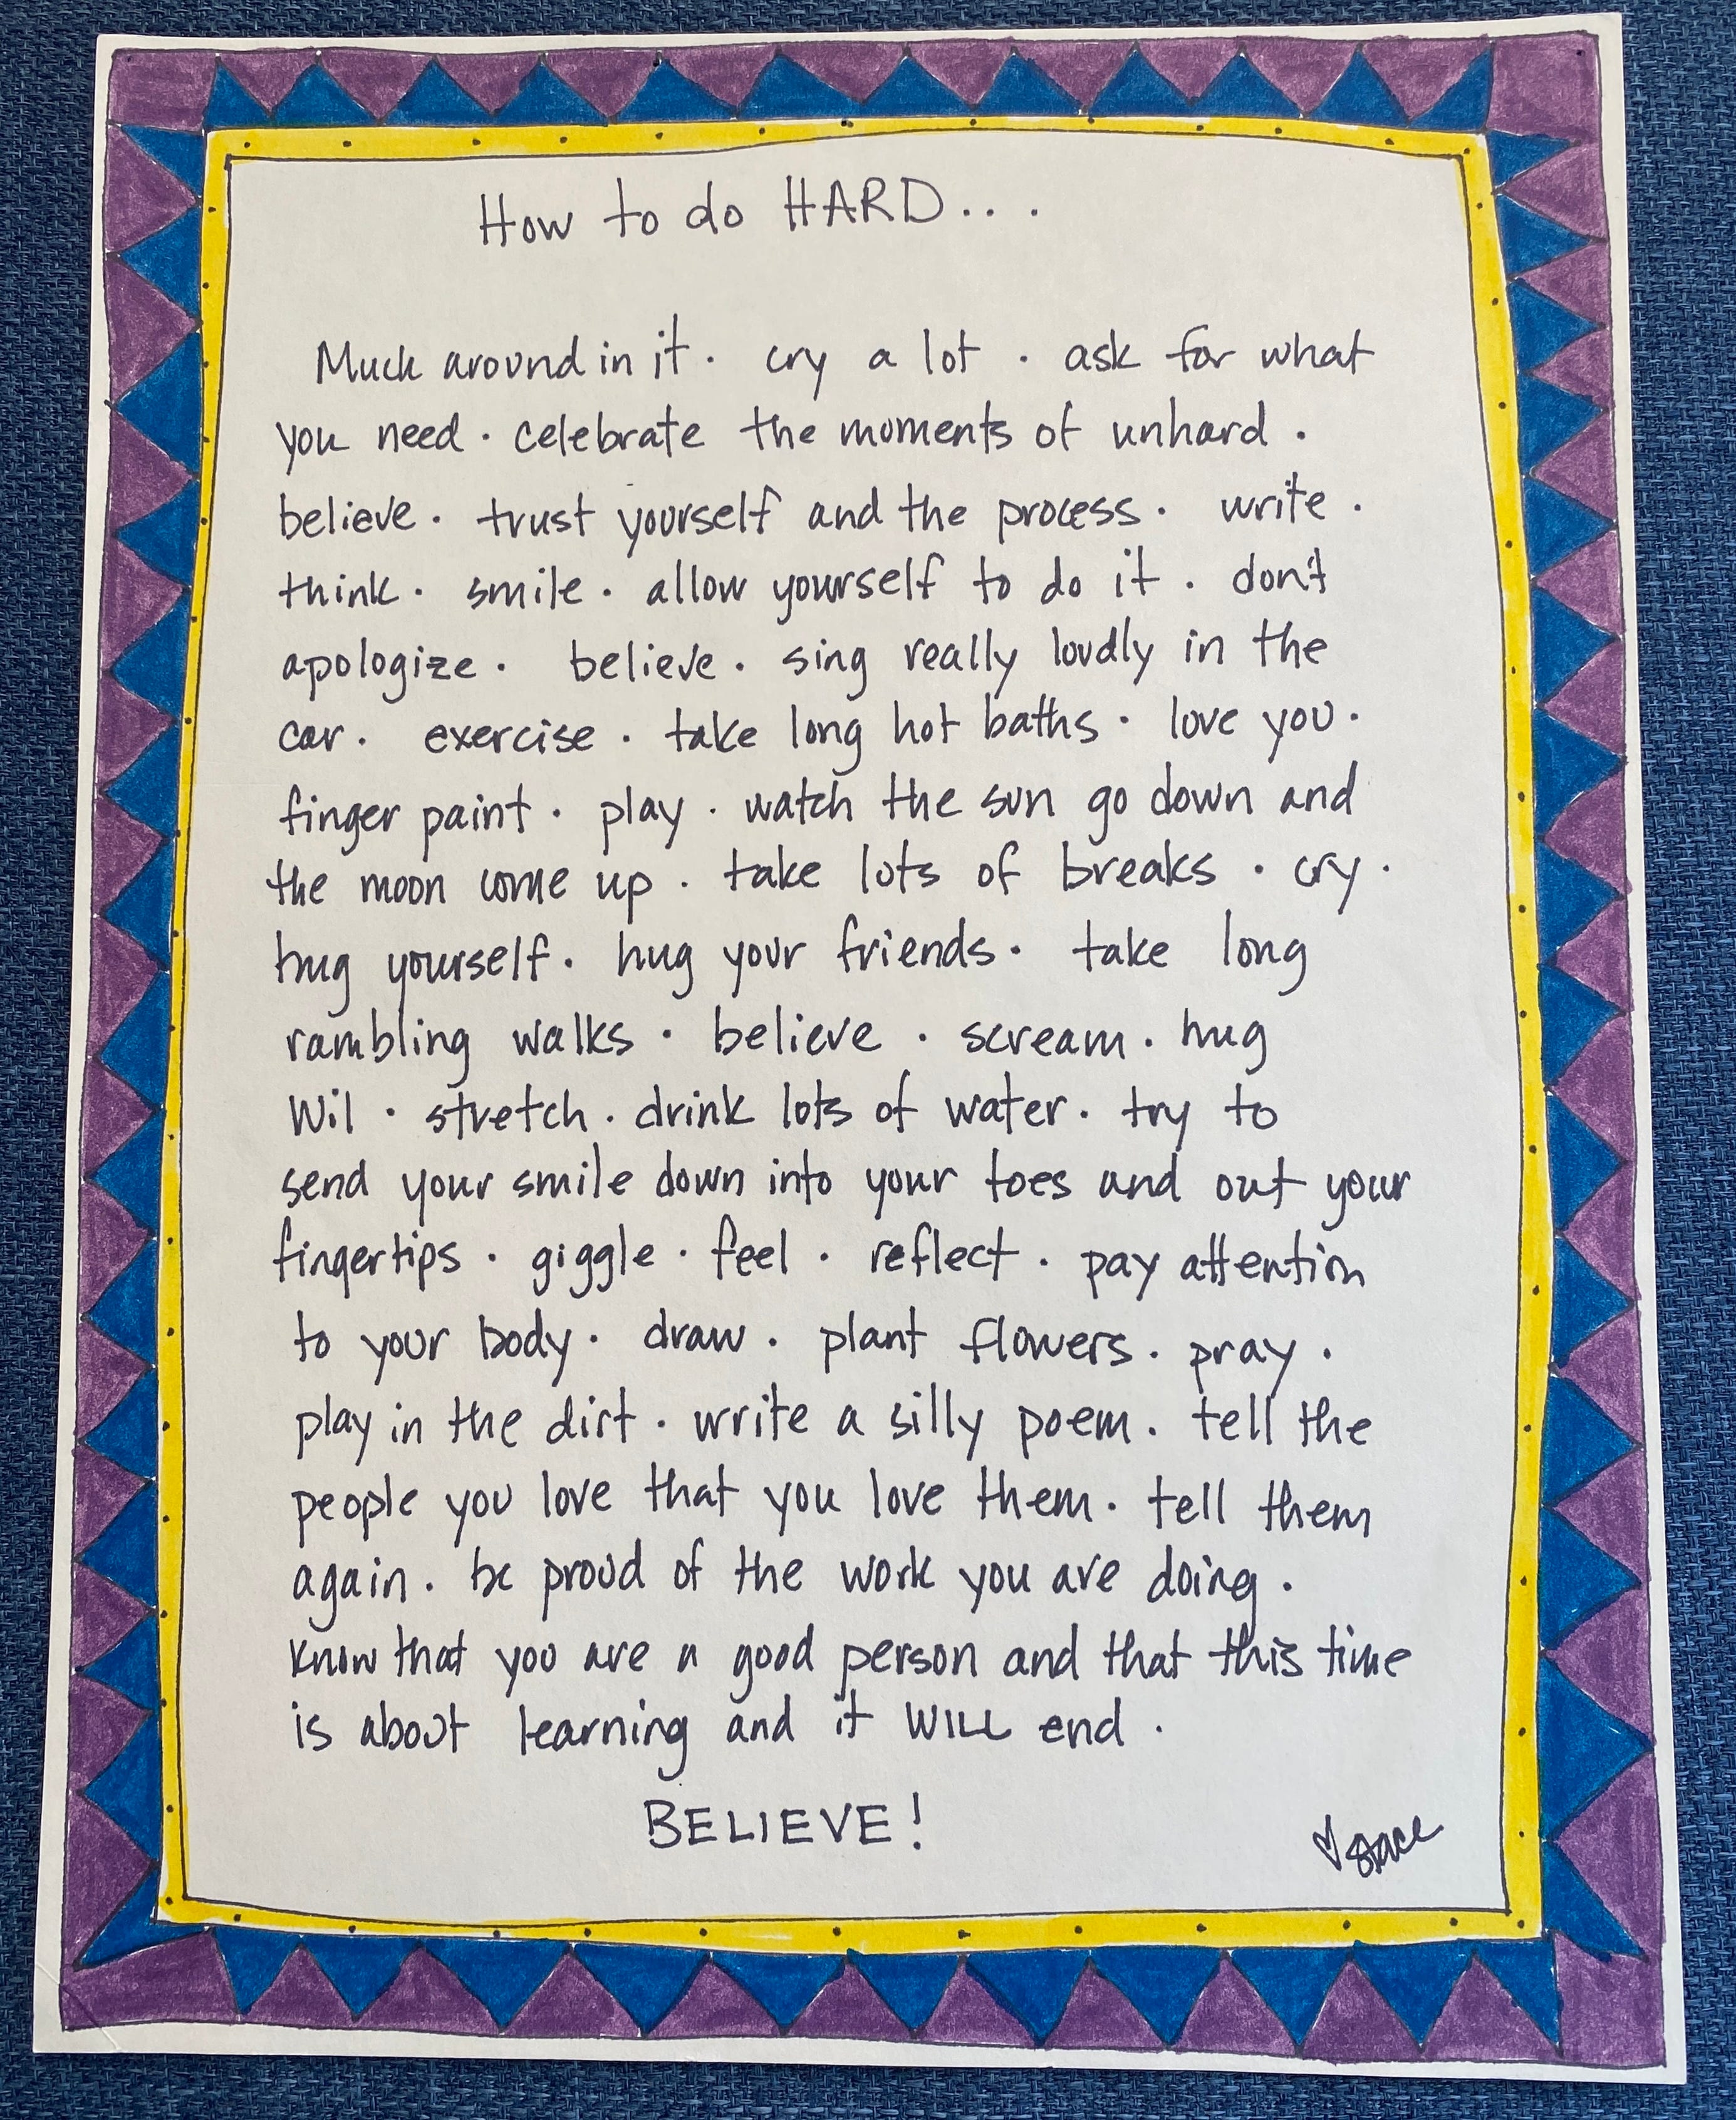 How to do HARD...
Muck around in it. cry a lot. ask for what
you need. celebrate the moments of unhard.
believe. trust yourself and the process. write.
think. smile. allow yourself to do it. don't
apologize. believe. sing really loudly in the
car. exercise. take long hot baths. love you.
finger paint. play. watch the sun go down and
the moon come up. take lots of breaks. cry.
hug yourself. hug your friends. take long
rambling walks. believe. scream. hug
Wil. stretch. drink lots of water. try to
send your smile down into your toes and out your
fingertips. giggle. feel. reflect. pay attention
to your body. draw. plant flowers. pray.
play in the dirt. write a silly poem. tell the
people you love that you love them. tell them
again. be proud of the work you are doing.
Know that you are a good person and that this time
is about learning and it WILL end.
BELIEVE!
♡ Stace